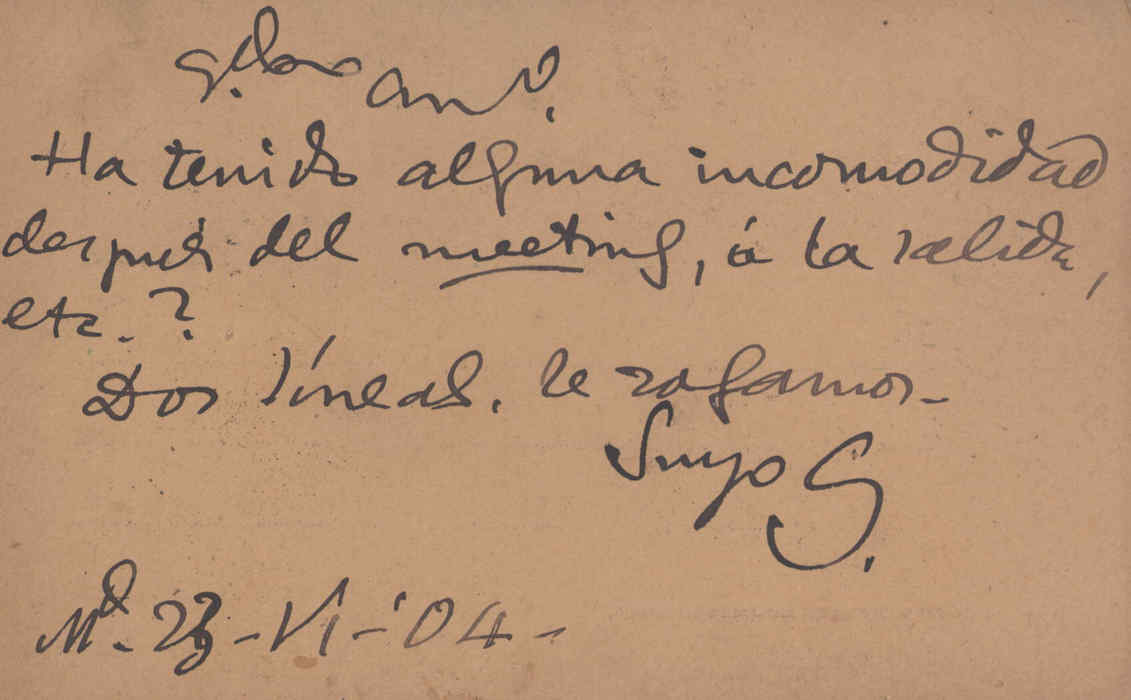 Ha tenido alguna incomodidad
después del meeting, á la salida,
etc.?
Dos líneas, le rogamos-
Suyo G.
Md. 23-VI-'04-